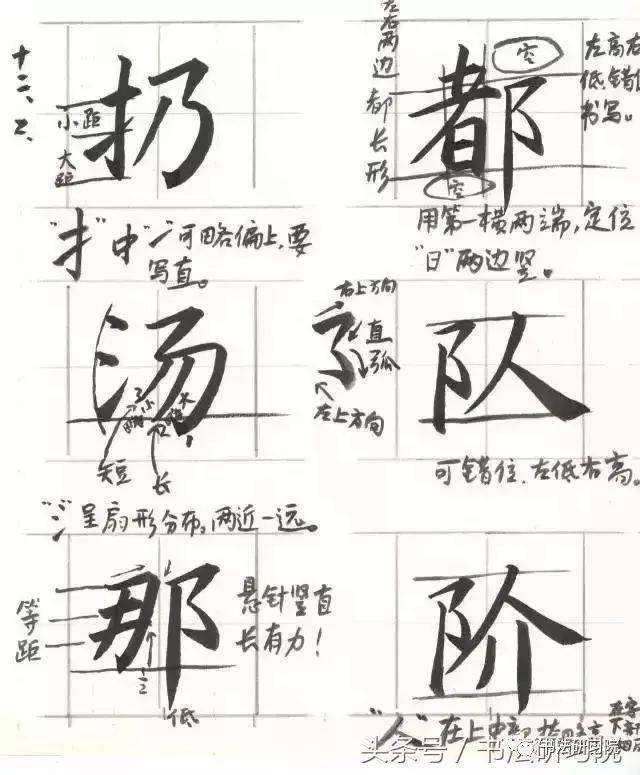 十二、
扔
小距
大距
"扌"中"㇀"可略偏上,要
写直。
左右两边都长形
都
空
空
左高右
低错
书写。
用第一横两端,定位
"日"两边竖。
汤
短
长
"氵"呈扇形分布,两近一远。
右上方向
直
弧
左上方向
队
可错位、左低右高。
那
等距
低
悬针竖直
长有力!
阶
"人"在上中部
头条号/书法研习院
书法研习院